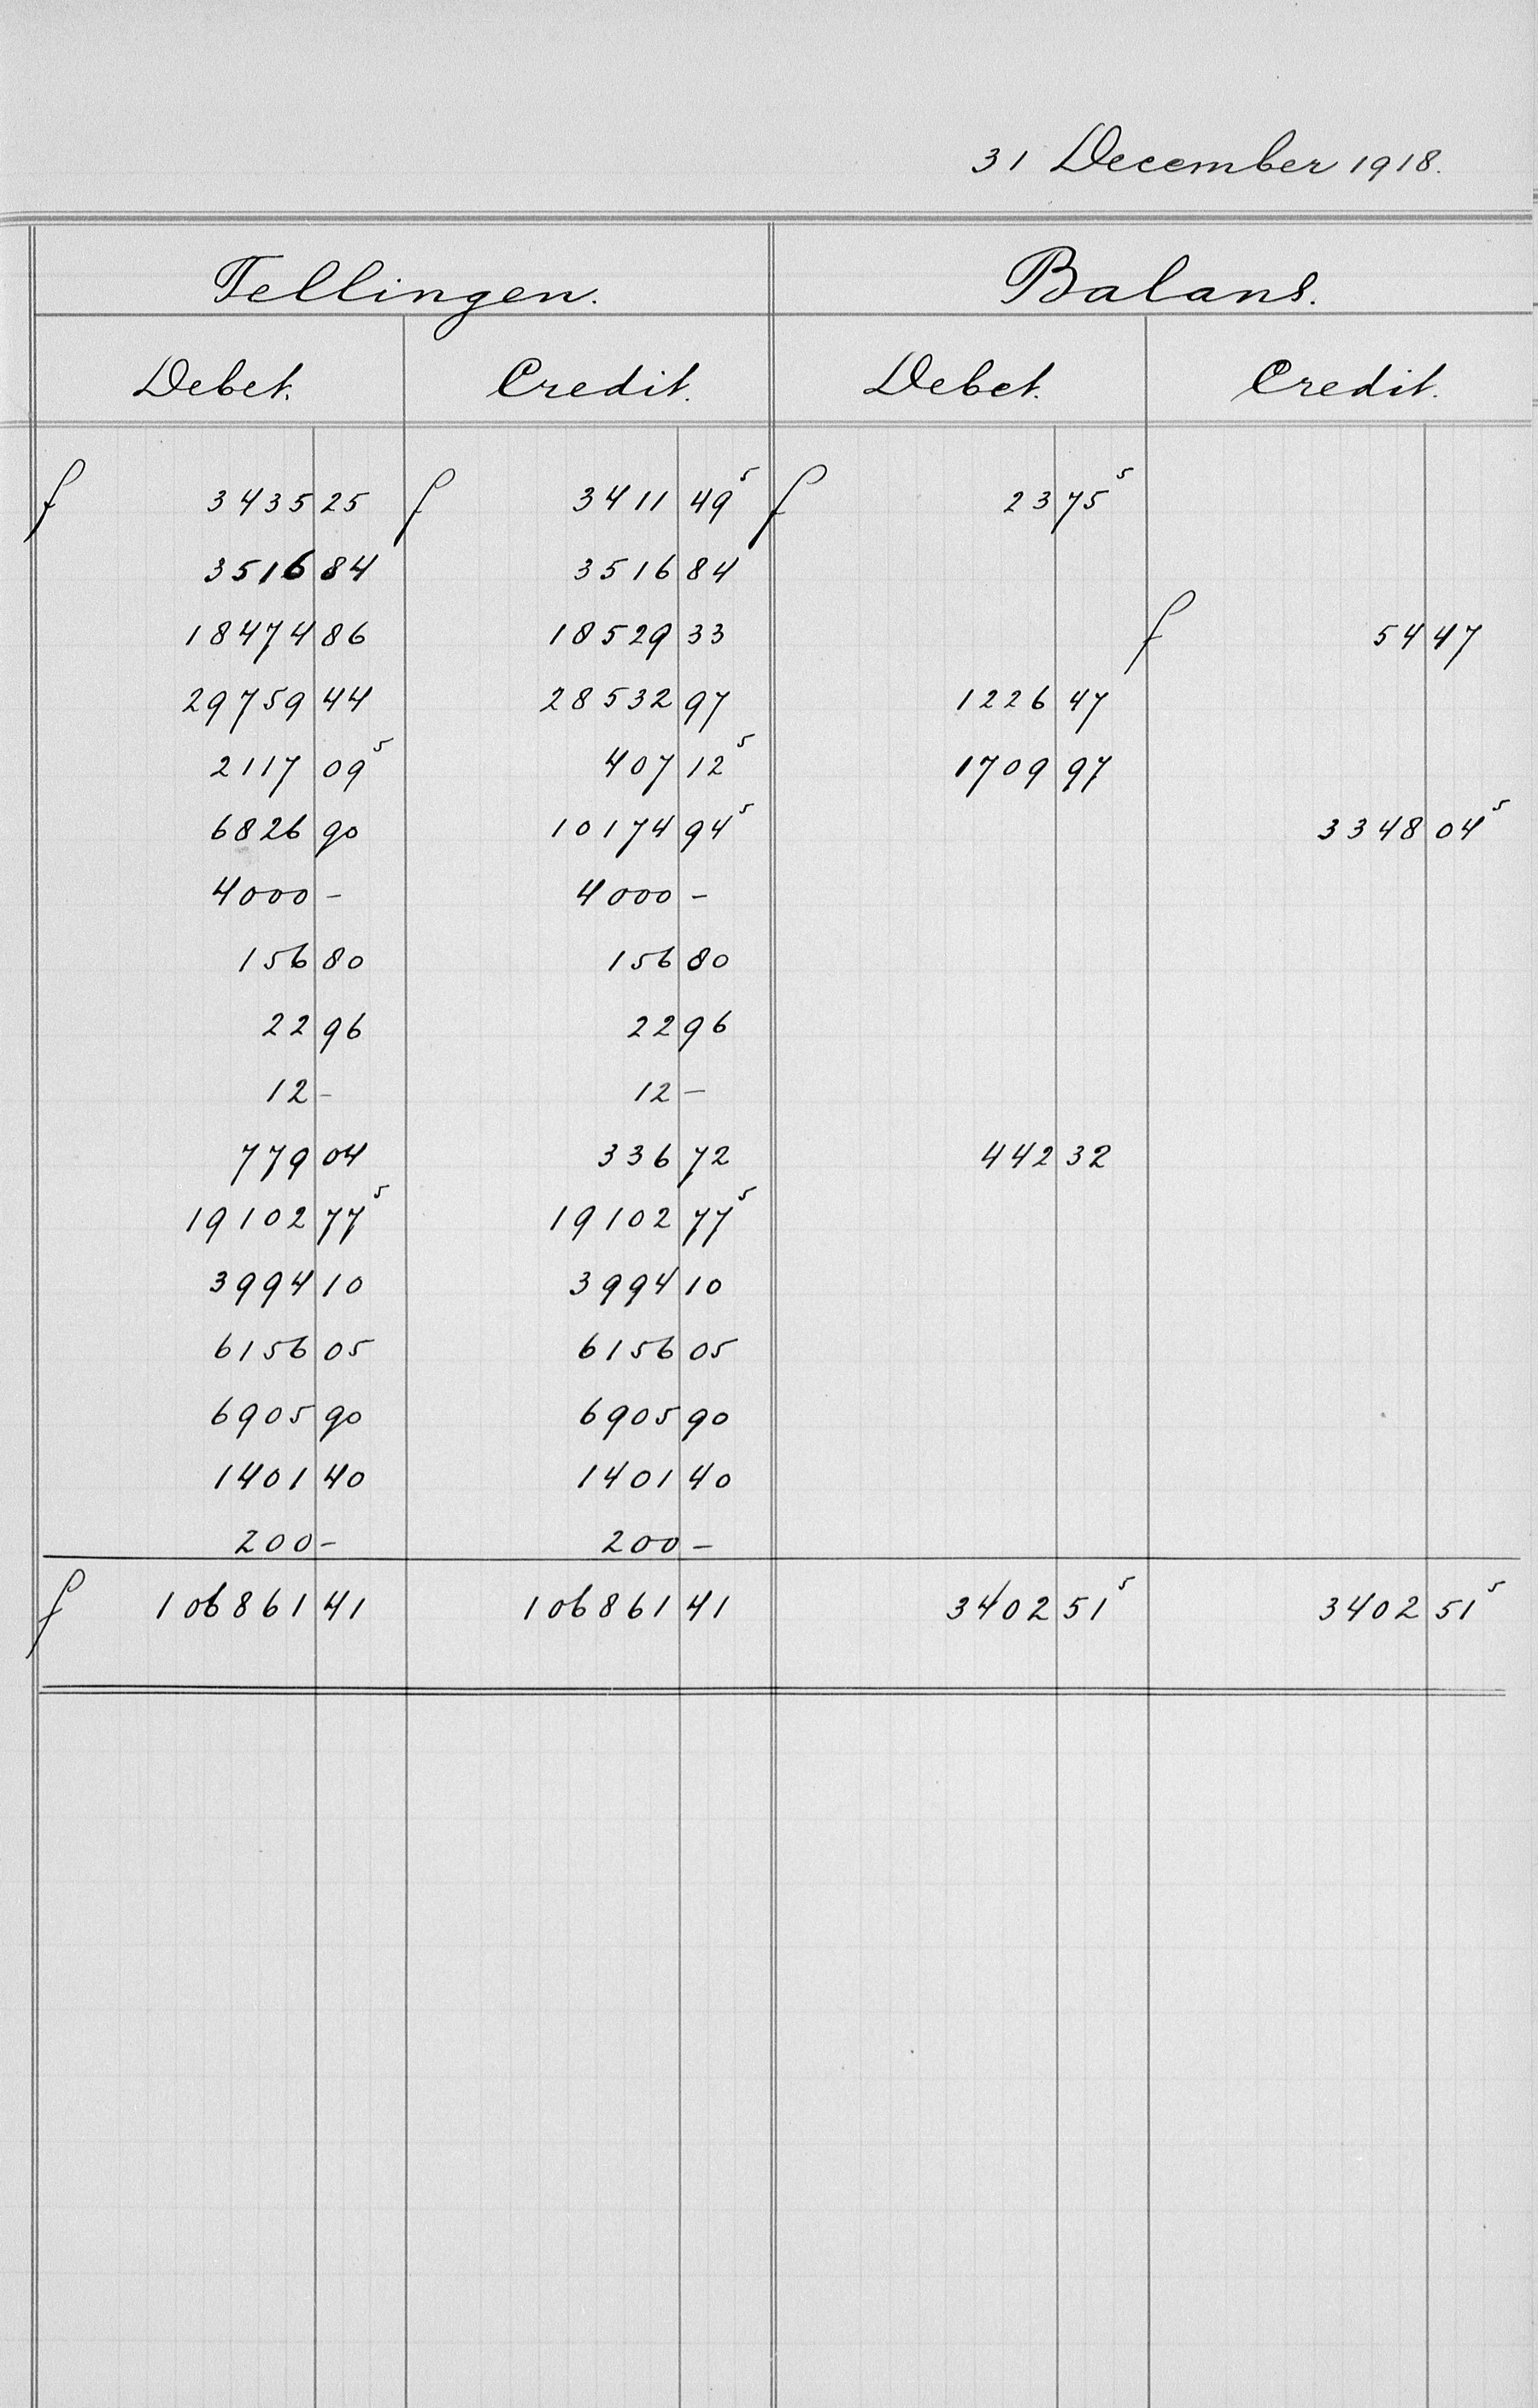 31 December 1918.
Tellingen. Balans.
Debet. Credit. Debet. Credit.
f 3435 25 f 3411 49⁵ f 23 75⁵
3516 84 3516 84
18474 86 18529 33 f 54 47
29759 44 28532 97 1226 47
2117 09⁵ 407 12⁵ 1709 97
6826 90 10174 94⁵ 3348 04⁵
4000 - 4000 -
156 80 156 80
22 96 22 96
12 - 12 -
779 04 336 72 442 32
19102 77⁵ 19102 77⁵
3994 10 3994 10
6156 05 6156 05
6905 90 6905 90
1401 40 1401 40
200 - 200 -
f 106861 41 106861 41 3402 51⁵ 3402 51⁵